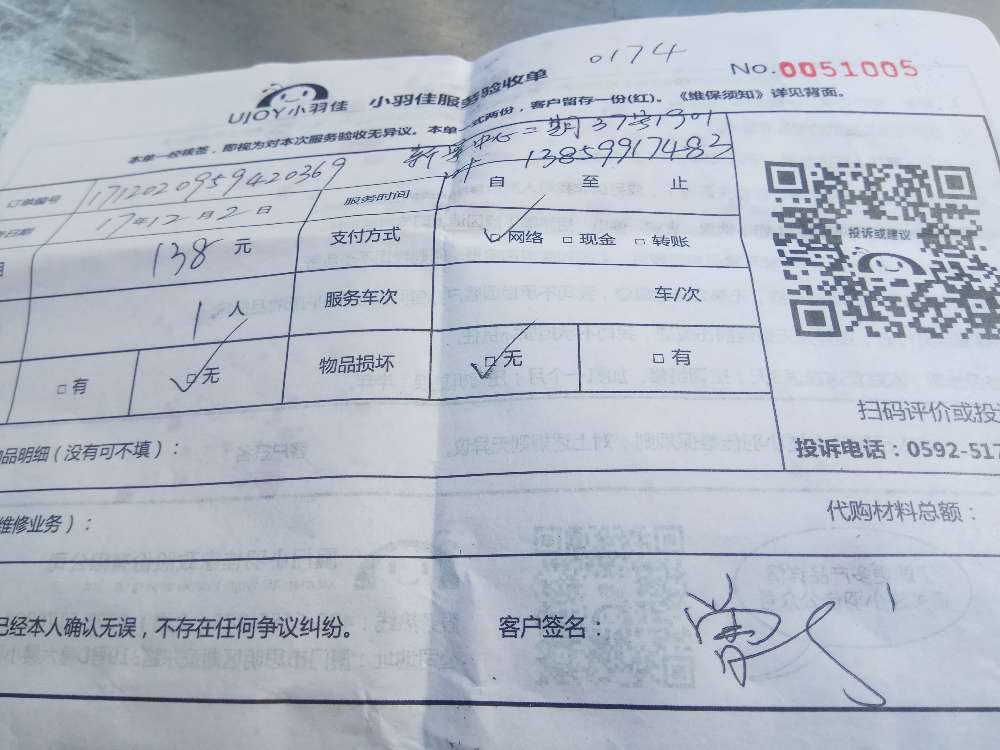 0174
No.0051005
UJOY小羽佳 小羽佳服务验收单
本单一经核签，即视为对本次服务验收无异议。本单一式两份，客户留存一份(红)。《维保须知》详见背面。
中心二期37号1901
订单编号 1712020959420369 服务时间 13859917483
自 至 止
日期 17年12月2日 支付方式 □网络 □现金 □转账
138元
1人 服务车次 车/次
□有 □无 物品损坏 □无 □有
投诉或建议
扫码评价或投
投诉电话：0592-517
品明细（没有可不填）：
维修业务）： 代购材料总额：
已经本人确认无误，不存在任何争议纠纷。 客户签名：